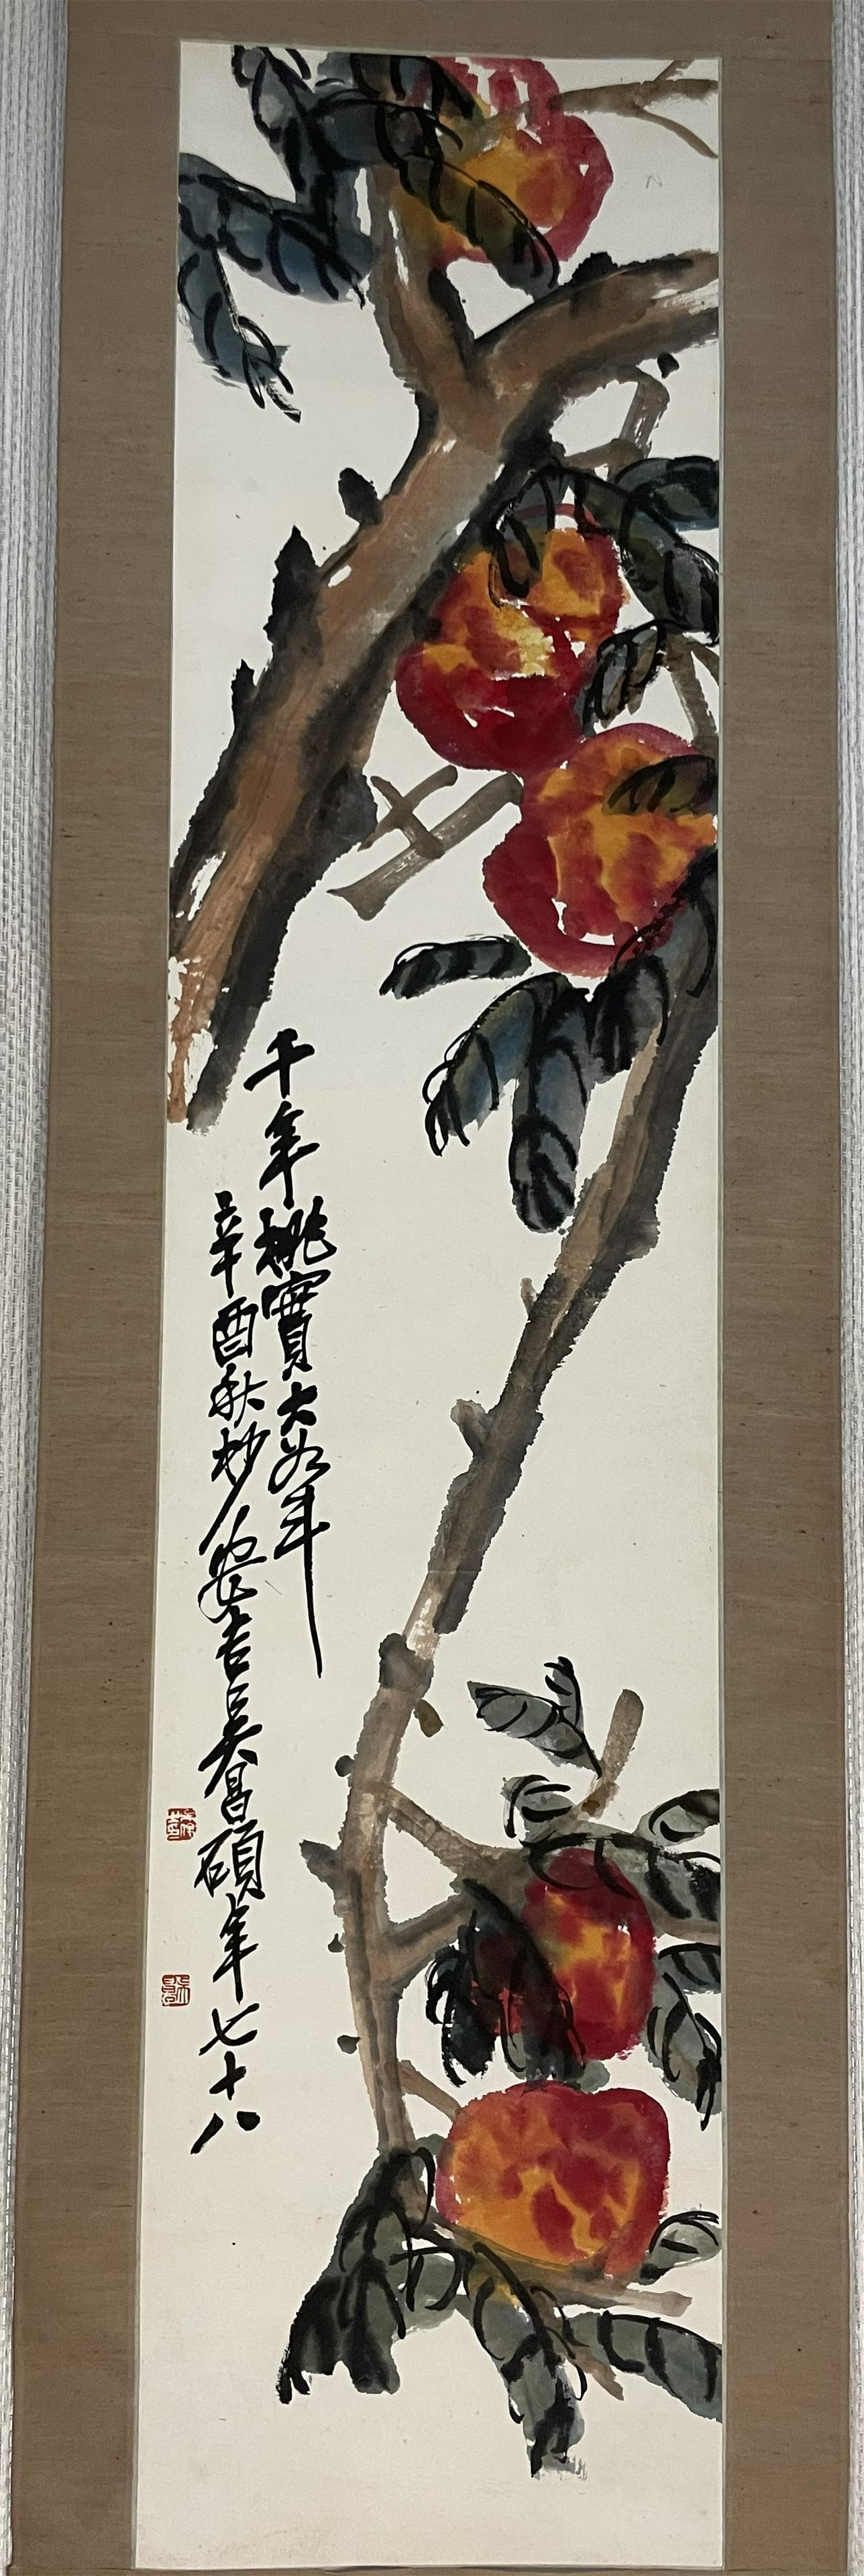 千年桃實大如斗
辛酉秋杪安吉吳昌碩年七十八